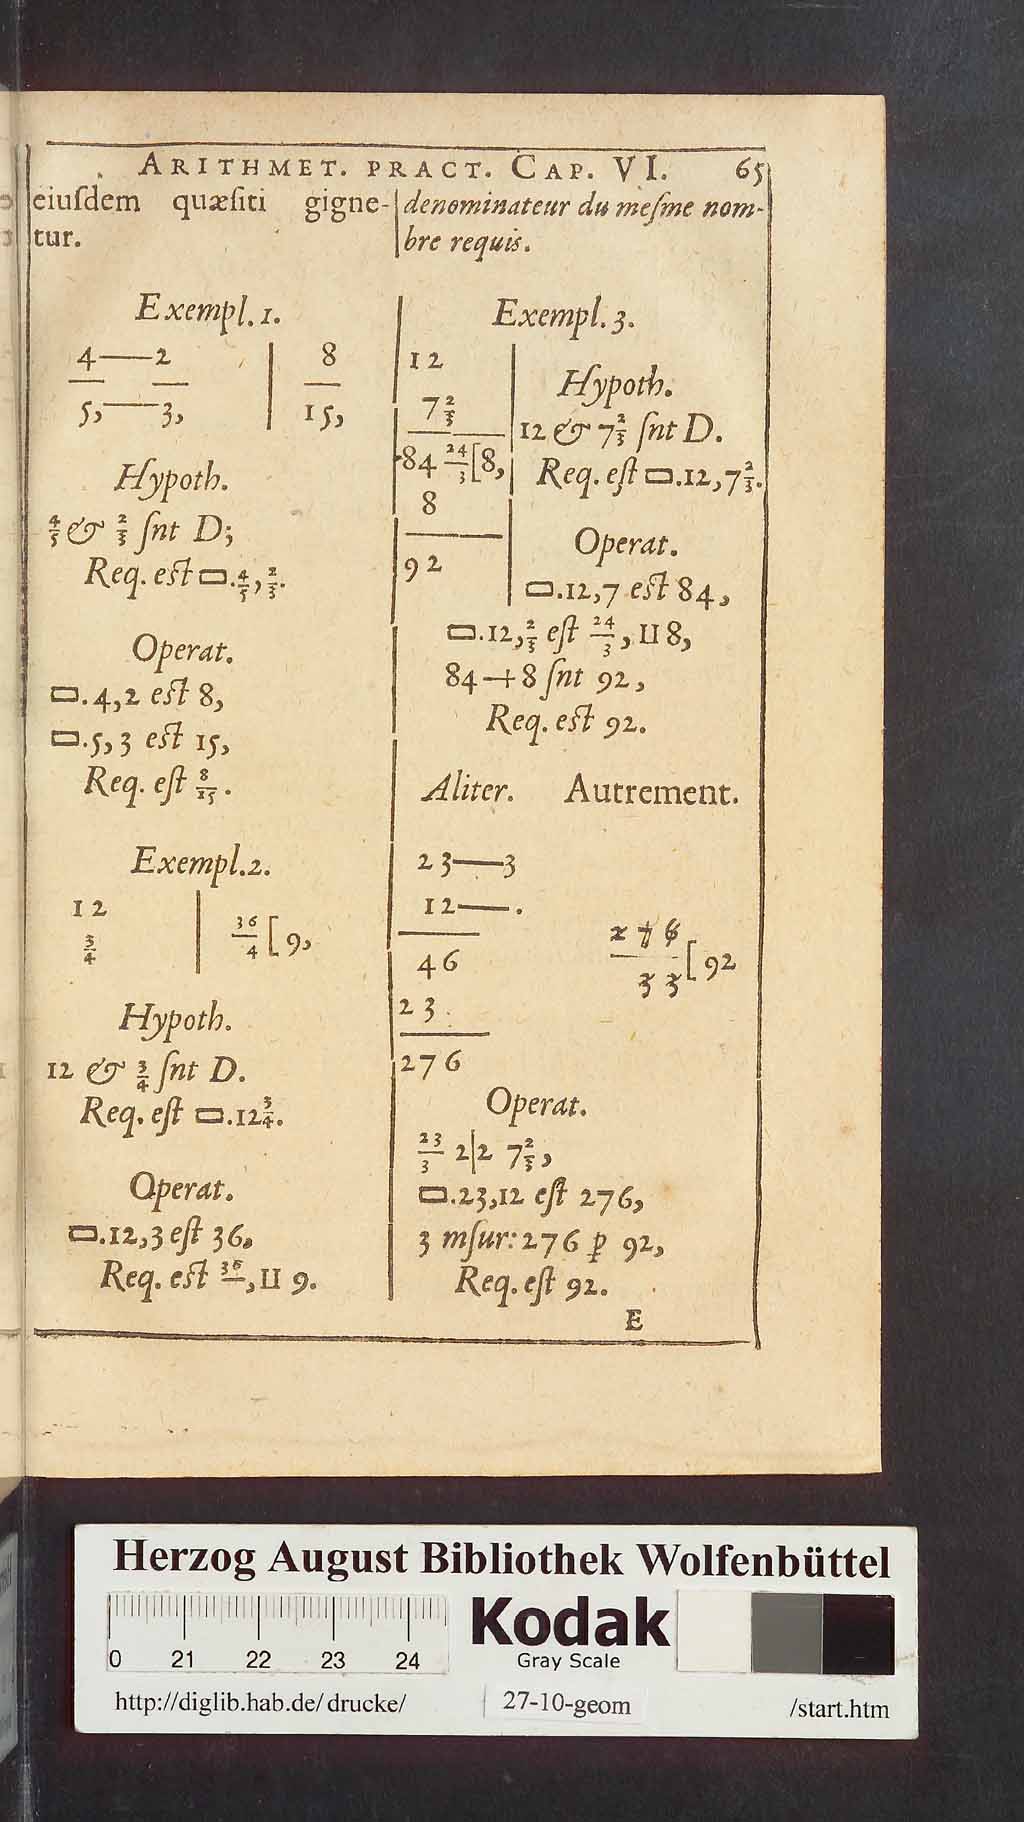 ARITHMET. PRACT. CAP. VI. 65
eiuſdem quæſiti gigne-
tur.
Exempl. 1.
4——2 | 8
5,——3, | 15,
Hypoth.
4/5 & 2/3 ſnt D;
Req. est ▭.4/5, 2/3.
Operat.
▭.4,2 est 8,
▭.5,3 est 15,
Req. eſt 8/15.
Exempl.2.
12
3/4 | 36/4 [9,
Hypoth.
12 & 3/4 ſnt D.
Req. eſt ▭.12 3/4.
Operat.
▭.12,3 eſt 36,
Req. est 36/, II 9.
denominateur du meſme nom-
bre requis.
Exempl. 3.
12
7 2/3
84 24/3 [8,
8
92
Hypoth.
12 & 7 2/3 ſnt D.
Req. eſt ▭.12, 7 2/3.
Operat.
▭.12,7 est 84,
▭.12, 2/3 eſt 24/3, II 8,
84 + 8 ſnt 92,
Req. est 92.
Aliter. Autrement.
23——3
12——.
46
23.
276
276/33 [92
Operat.
23/3 2|2 7 2/3,
▭.23,12 eſt 276,
3 mſur: 276 ꝑ 92,
Req. eſt 92.
E
Herzog August Bibliothek Wolfenbüttel
0 21 22 23 24
Kodak
Gray Scale
http://diglib.hab.de/drucke/ 27-10-geom /start.htm